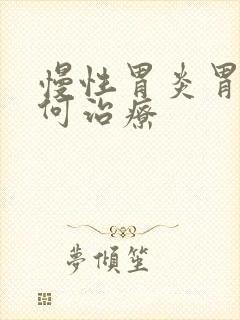 慢性胃炎胃
何治療
夢傾笙